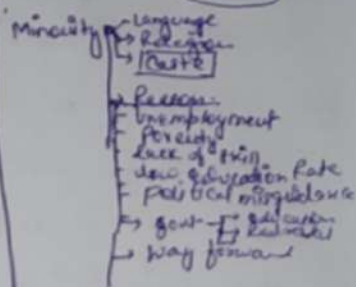 Minority Language
Religion
Caste
Reason
Unemployment
Poverty
Lack of skill
low education Rate
Political misguidance
govt education
way forward